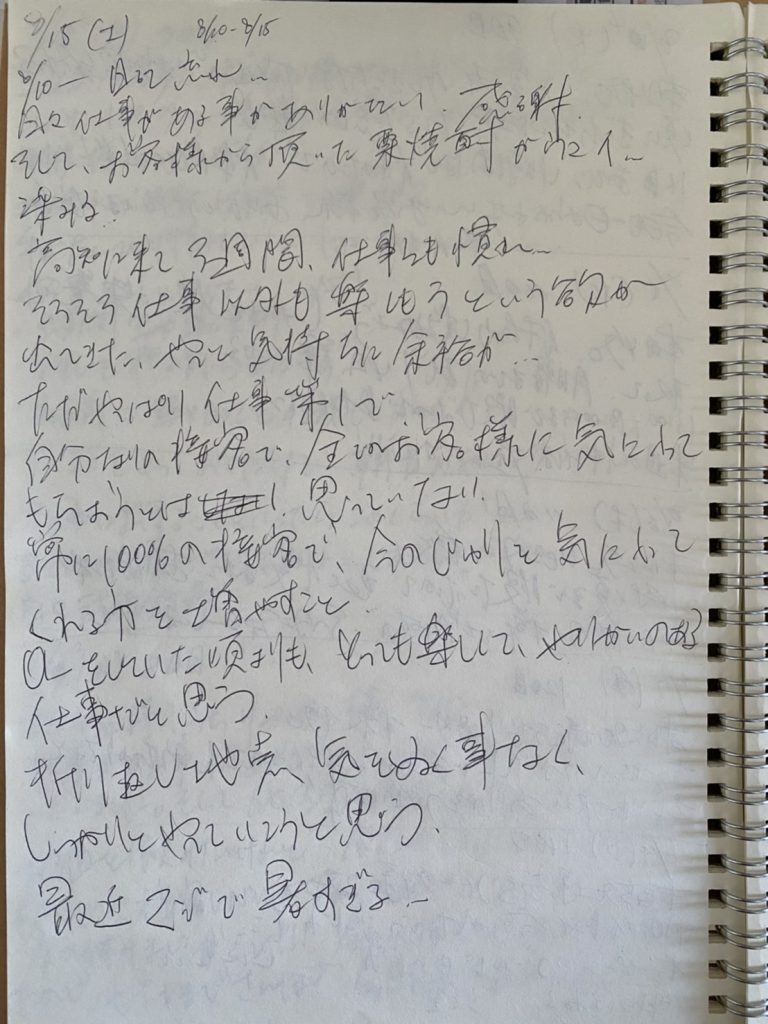 8/15 (土) 8/10-8/15
8/10ー 日記忘れ…
日々仕事がある事がありがたい。感謝。
そして、お客様から頂いた栗焼酎がウマイ…
染みる…
高知に来て3週間、仕事にも慣れ…
そろそろ仕事以外も楽しもうという欲が
出てきた、やっと気持ちに余裕が…
ただやっぱり仕事第1で
自分なりの接客で、全てのお客様に気に入って
もらおうとは思っていない。
常に100%の接客で、今のびゃりを気に入って
くれる方を増やすこと。
をしていた頃よりも、とっても楽しくて、やりがいのある
仕事だと思う。
折り返し地点、気をぬく事なく、
しっかりとやっていこうと思う。
最近マジで暑すぎる…